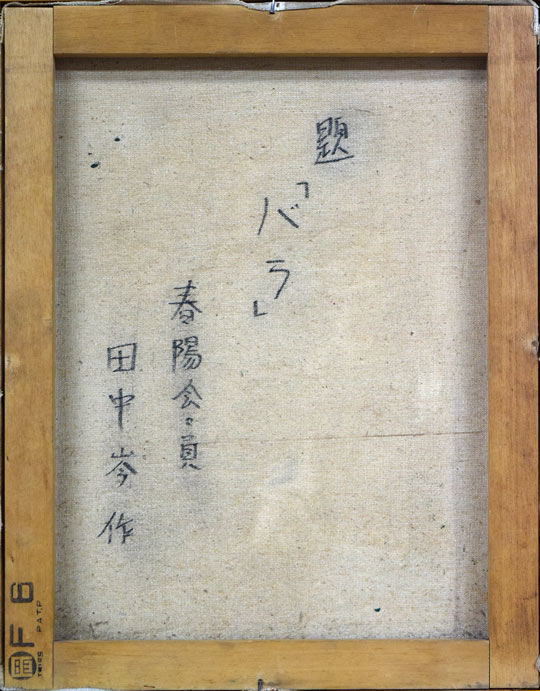 題
「バラ」
春陽会々員
田中岑作
F6
PAT.P